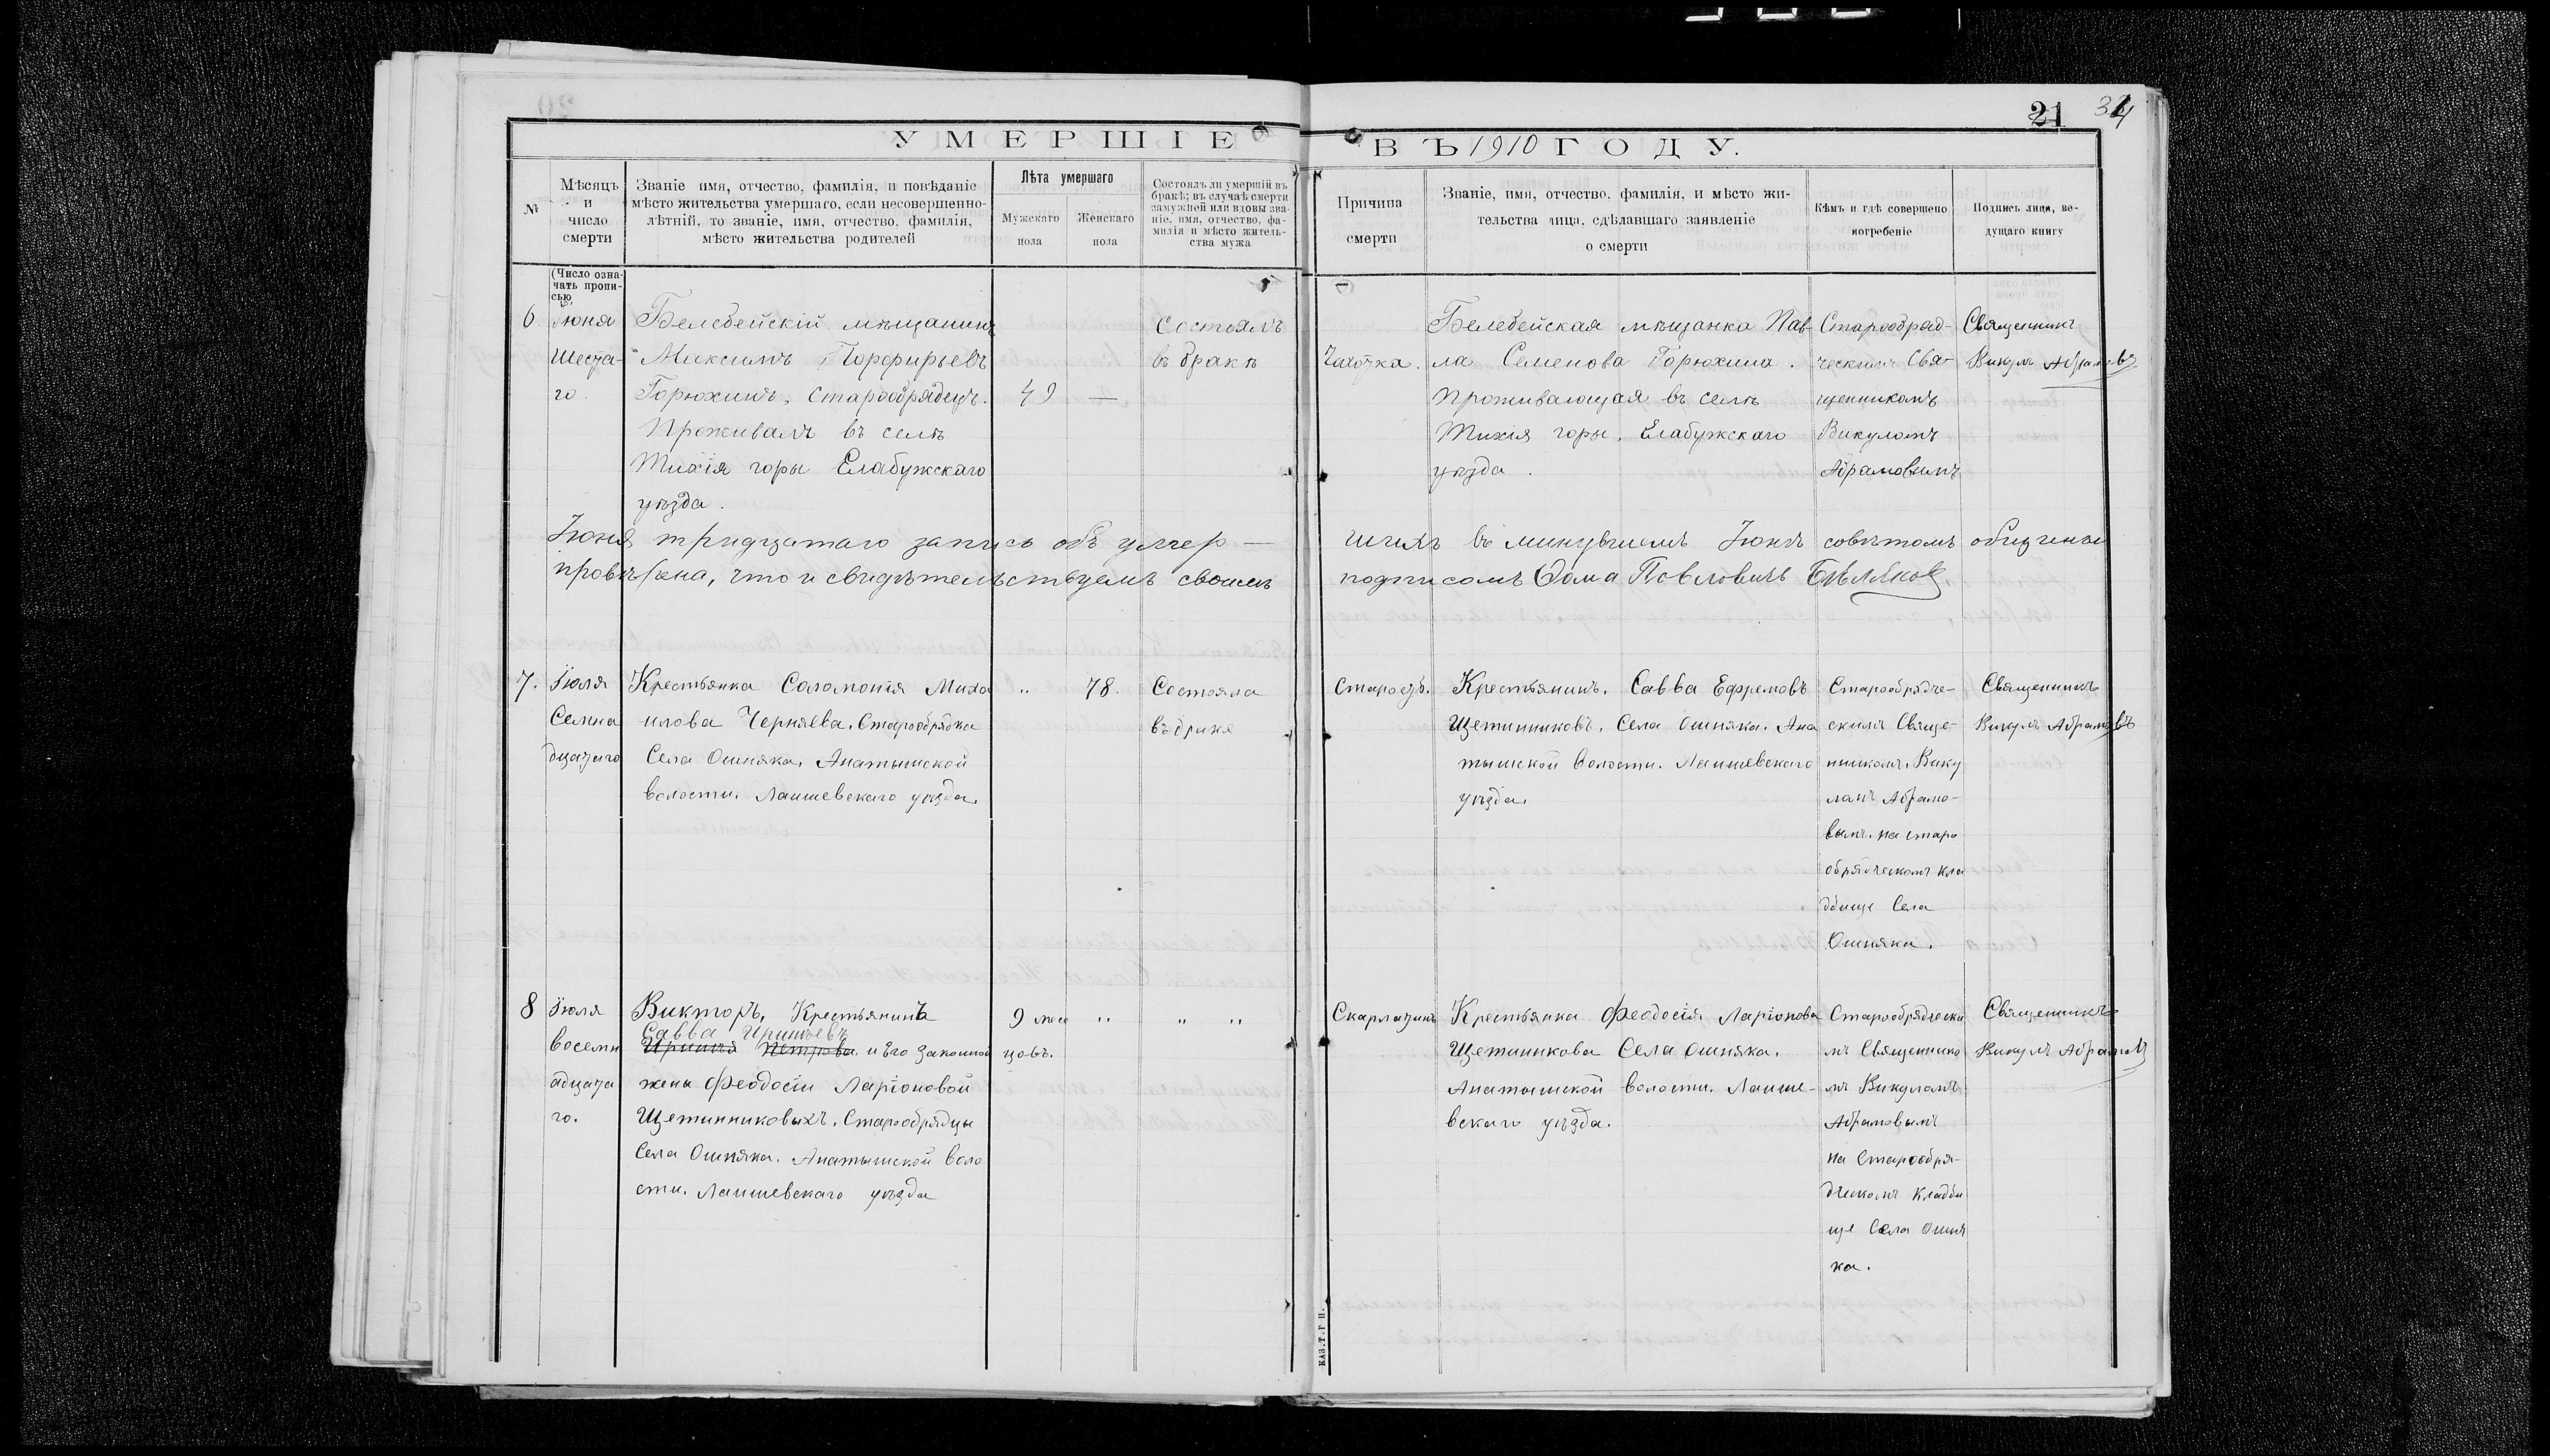 21 314
УМЕРШІЕ
ВЪ 1910 ГОДУ.
№
Мѣсяцъ
и
число
смерти
Званіе имя, отчество, фамилія, и повѣданіе
мѣсто жительства умершаго, если несовершенно-
лѣтній, то званіе, имя, отчество, фамилія,
мѣсто жительства родителей
Лѣта умершаго
Мужскаго
пола
Женскаго
пола
Состоялъ ли умершій въ
бракѣ; въ случаѣ смерти
замужней или вдовы зва-
ніе, имя, отчество, фа-
милія и мѣсто житель-
ства мужа
Причина
смерти
Званіе, имя, отчество, фамилія, и мѣсто жи-
тельства лица, сдѣлавшаго заявленіе
о смерти
Кѣмъ и гдѣ совершено
погребеніе
Подпись лица, ве-
дущаго книгу
(Число озна-
чать пропи-
сью)
6
Іюня
Шеста-
го.
Белебейскій мѣщанинъ
Максимъ Порфирьевъ
Горюхинъ, Старообрядецъ.
Проживалъ въ селѣ
Тихія горы Елабужскаго
уѣзда.
49 —
Состоялъ
въ бракѣ
Чахотка.
Белебейская мѣщанка Пав-
ла Семенова Горюхина.
Проживающая въ селѣ
Тихія горы, Елабужскаго
уѣзда.
Старообряд-
ческимъ Свя-
щенникомъ
Викуломъ
Абрамовымъ
Священникъ
Викулъ Абрамовъ
Іюня тридцатаго запись объ умер-
шихъ въ минувшемъ Іюнѣ совѣтомъ общины
провѣрена, что и свидѣтельствуемъ своимъ
подписомъ Ѳома Павловичъ Бѣляков
7.
Іюля
Семна
дцатаго
Крестьянка Соломонія Миха
илова Черняева. Старообрядка
Села Ошняка, Анатышской
волости. Лаишевскаго уѣзда.
" 78.
Состояла
въ браке
Старость.
Крестьянинъ. Савва Ефремовъ
Щетинниковъ, Села Ошняка. Ана
тышской Волости. Лаишевскаго
уѣзда.
Старообрядче-
скимъ Свяще-
нникомъ. Вику
ламъ Абрамо-
вымъ. на старо
обрядческомъ кла
дбище Села
Ошняка.
Священникъ
Викулъ Абрамовъ
8
Іюля
восемн
адцата
го.
Викторъ, Крестьянинъ
Савва Ириньевъ
Ириньи Петрова. и Его законной
жены Феодосіи Ларіоновой
Щетинниковыхъ. Старообрядцы
Села Ошняка. Анатышской воло
сти. Лаишевскаго уѣзда
9 меся
цовъ.
" " "
Скарлатинъ
Крестьянка Феодосія Ларіонова
Щетинникова Села Ошняка.
Анатышской волости. Лаише-
вскаго уѣзда.
Старообрядчески
мъ Священнико
мъ Викуломъ
Абрамовымъ
на Старообря-
дческомъ Кладби
ще Села Ошня
ка.
Священникъ
Викулъ Абрамовъ
КАЗ. Т. Г. П.